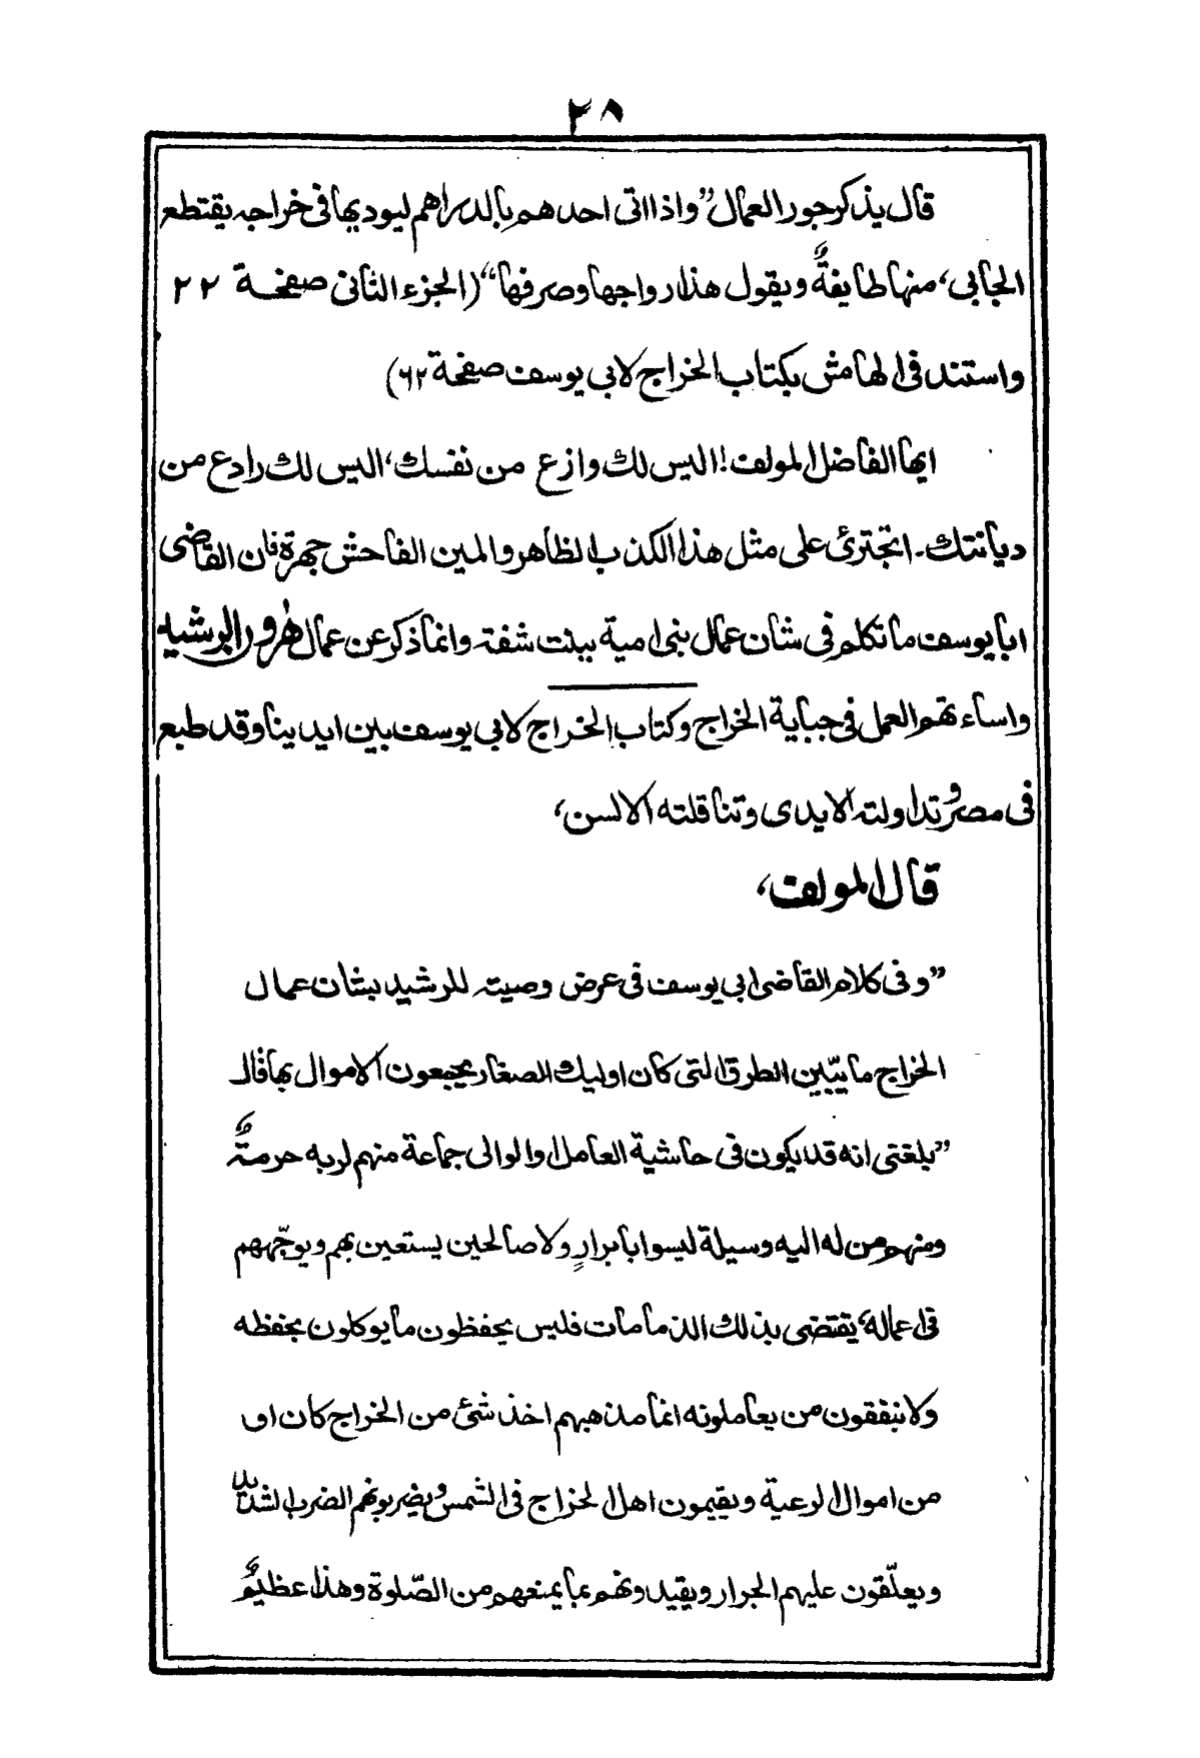 ٢٨
قال يذكر جور العمال ”واذا اتى احدهم بالدراهم ليوديها فى خراجه يقتطع
الجابى، منها طايفةً ويقول هذا رواجها وصرفها“ (الجزء الثانى صفحة ٢٢
واستند فى الهامش بكتاب الخراج لابى يوسف صفحة ٦٢)
ايها الفاضل المولف! اليس لك وازع من نفسك، اليس لك رادع من
ديانتك۔ اتجترئ على مثل هذا الكذب الظاهر والمين الفاحش جهرة فان القاضى
ابا يوسف ما تكلم فى شان عمال بنى امية ببنت شفة وانما ذكر عن عمال هٰرون الرشيد
واساءتهم العمل فى جباية الخراج وكتاب الخراج لابى يوسف بين ايدينا وقد طبع
فى مصر وتداولته الايدى وتناقلته الالسن،
قال المولف،
”وفى كلام القاضى ابى يوسف فى عرض وصيته للرشيد بشان عمال
الخراج ما يبّين الطرق التى كان اوليك الصغار يجمعون الاموال بها قال
”بلغنى انه قد يكون فى حاشية العامل او الوالى جماعة منهم لربه حرمةٌ
ومنهم من له اليه وسيلة ليسوا بابرارٍ ولا صالحين يستعين بهم ويوجّههم
فى اعماله، يقتضى بذلك الذمامات فليس يحفظون ما يوكلون بحفظه
ولا ينفقون من يعاملونه انما مذهبهم اخذ شئ من الخراج كان او
من اموال الرعية ويقيمون اهل الخراج فى الشمس ويضربونهم الضرب الشديد
ويعلّقون عليهم الجرار ويقيدونهم بما يمنعهم من الصّلوة وهذا عظيمٌ